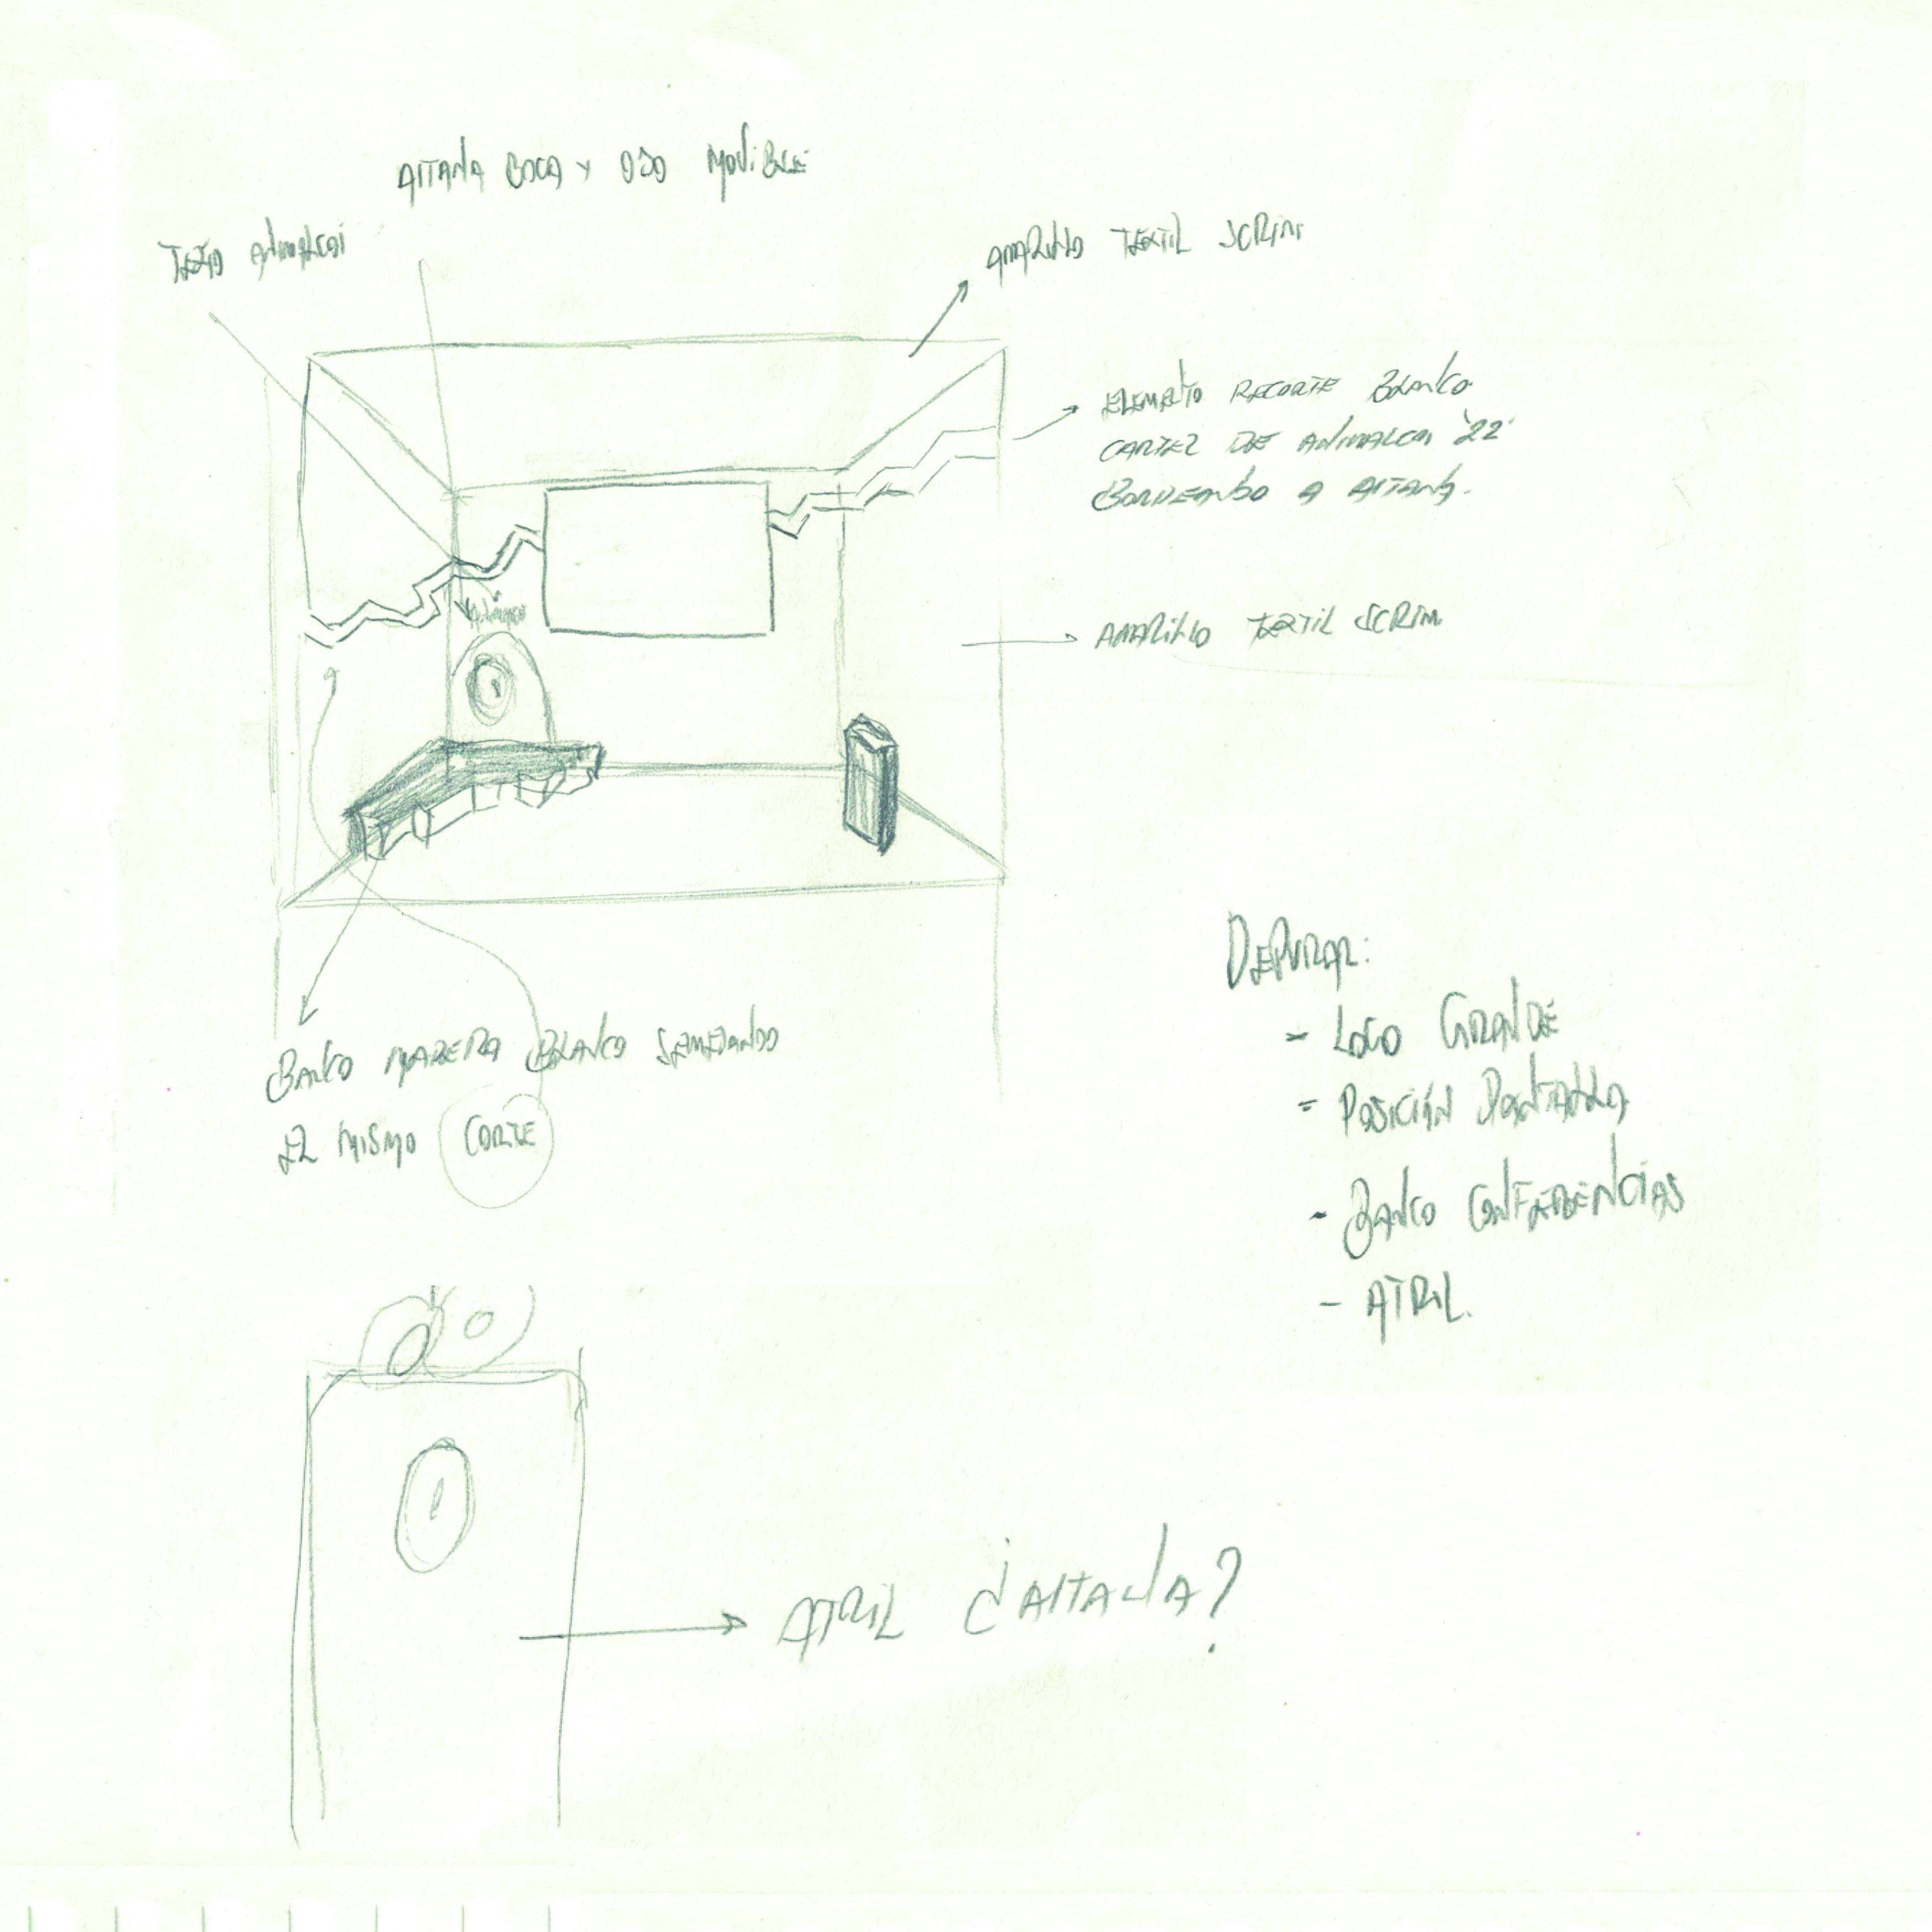 AITANA BOCA Y OJO MOVIBLE
TEXTO ANIMALCOI
AMARILLO TEXTIL SCRIM
ELEMENTO RECORTE BLANCO
CARTEL DE ANIMALCOI '22
BORDEANDO A AITANA.
AMARILLO TEXTIL SCRIM
BANCO MADERA BLANCO SEMEJANDO
EL MISMO CORTE
DEPURAR:
- LOGO GRANDE
- POSICIÓN PANTALLA
- BANCO CONFERENCIAS
- ATRIL.
ATRIL ¿AITANA?